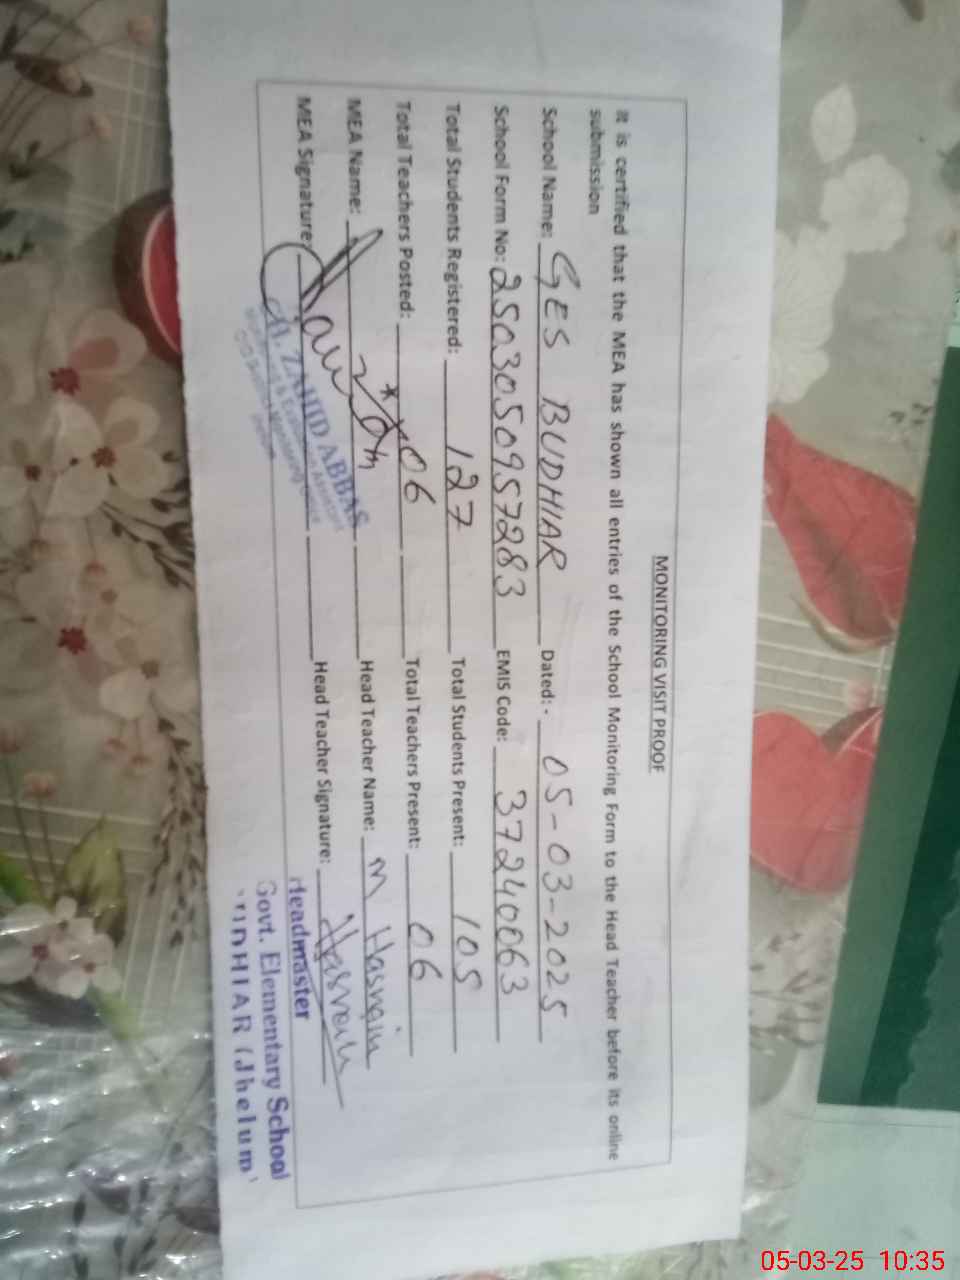 MONITORING VISIT PROOF
It is certified that the MEA has shown all entries of the School Monitoring Form to the Head Teacher before its online
submission
School Name: GES BUDHIAR Dated: - 05-03-2025
School Form No: 2503050957283 EMIS Code: 37240063
Total Students Registered: 127 Total Students Present: 105
Total Teachers Posted: 06 Total Teachers Present: 06
MEA Name: Head Teacher Name: M Hasnain
MEA Signature: Head Teacher Signature: Hasnain
ZAHID ABBAS
Headmaster
Govt. Elementary School
(Jhelum)
05-03-25 10:35